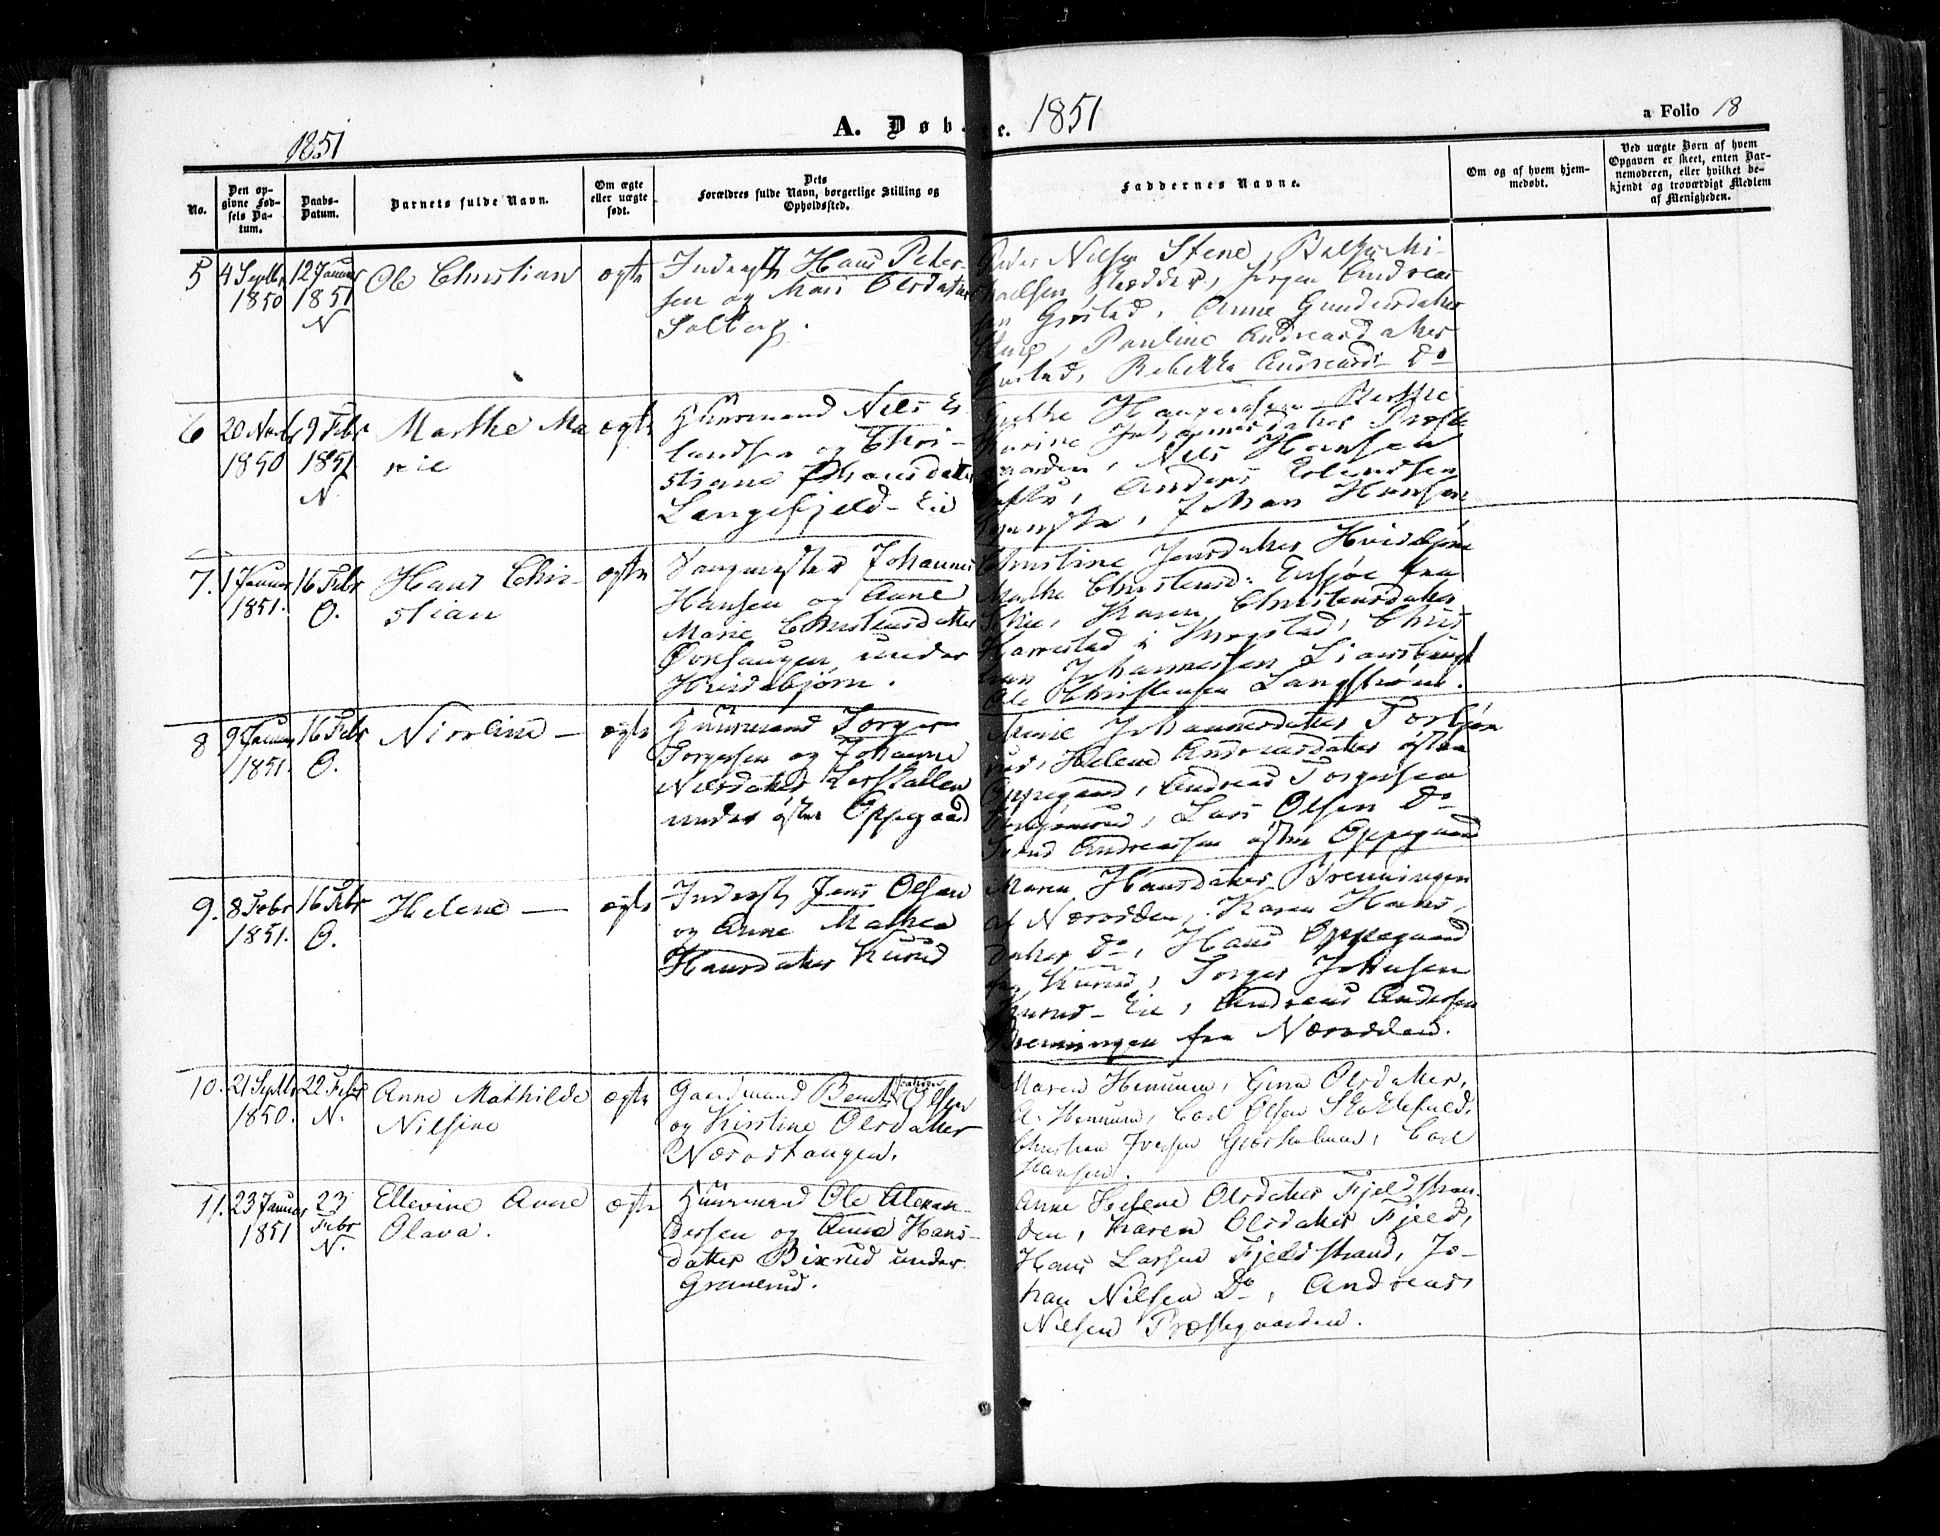 A. Døb e. 1851
a Folio 18
1851
No.
Den op-
givne Fød-
sels Da-
tum.
Daabs-
Datum.
Barnets fulde Navn.
Om ægte
eller uægte
født.
Dets
Forældres fulde Navn, borgerlige Stilling og
Opholdssted.
Faddernes Navne.
Om og af hvem hjem-
medøbt.
Ved uægte Børn af hvem
Opgaven er skeet, enten Bar-
nemoderen, eller hvilket be-
kjendt og troværdigt Medlem
af Menigheden.
5
4 Septbr
1850
12 Januar
1851
N
Ole Christian
ægte
Inderst Hans Peter-
sen og Olsdatter
Solberg.
Peder Nilsen Stene, Mi-
Jørgen Andrea
Anne Gundersdatter
Pauline Andreasdatter
Rebekka Andreasd Do
6
20 Novbr
1850
9 Febr
1851
N
Marthe Ma
rie
ægte
Huusmand Nils Er
landsen og Chri-
stiane Johansdatter
Langefjeld-Eie
Johannesdatter Præste
gaarden, Nils Hansen
Anders Erlandsen
Johan Hansen
7.
1 Januar
1851.
16 Febr
O.
Hans Chri-
stian
ægte
Johannes
Hansen og Anne
Marie Christensdatter
under
Hvidebjørn.
Christine Jensdatter Hvidebjørn
Mathe Christensd. fra
Skie, Karen Christensdatter
Harrestad i Kragstad, Chris
tian Johannessen
Ole Christensen Langstrøm.
8
9 Januar
1851.
16 Febr
O.
Nicoline
ægte
Huusmand Torger
Torgersen og Johanne
Nilsdatter
under østre Oppegaard
Marie Johannesdatter Torbjørn
rud, Helene Andreasdatter østre
Oppegaard, Andreas Torgersen
Lars Olsen Do
Svend Andreassen østre Oppegaard
9.
8 Febr
1851.
16 Febr
O.
Helene
ægte
Inderst Jens Olsen
og Anne Mathea
Hansdatter Kurud
Maren Hansdatter Brenningen
af Næsodden, Karen Hans-
datter Do, Hans Oppegaard
fra Kurud, Torger Johnsen
Kurud-Eie, Andreas Andersen
Brenningen fra Næsodden.
10.
21 Septbr
1850.
22 Febr
N.
Anne Mathilde
Nilsine
ægte
Gaardmand Bernt Olsen
og Kirstine Olsdatter
Næsodtangen.
Maren Hemmen, Gina Olsdatter,
A. Hemmen, Carl Olsen Skoklefald,
Christian Iversen Carl
Hansen.
11.
23 Januar
1851
23
Febr
N.
Ellevine Anne
Olava.
ægte
Huusmand Ole Alexan-
dersen og Anna Hans-
datter Bixrud under
Granerud.
Anne Helene Olsdatter Fjeldstran-
den, Karen Olsdatter Fjeld,
Hans Larsen Fjeldstrand, Jo-
han Nilsen Do, Andreas
Nilsen Præstegaarden.